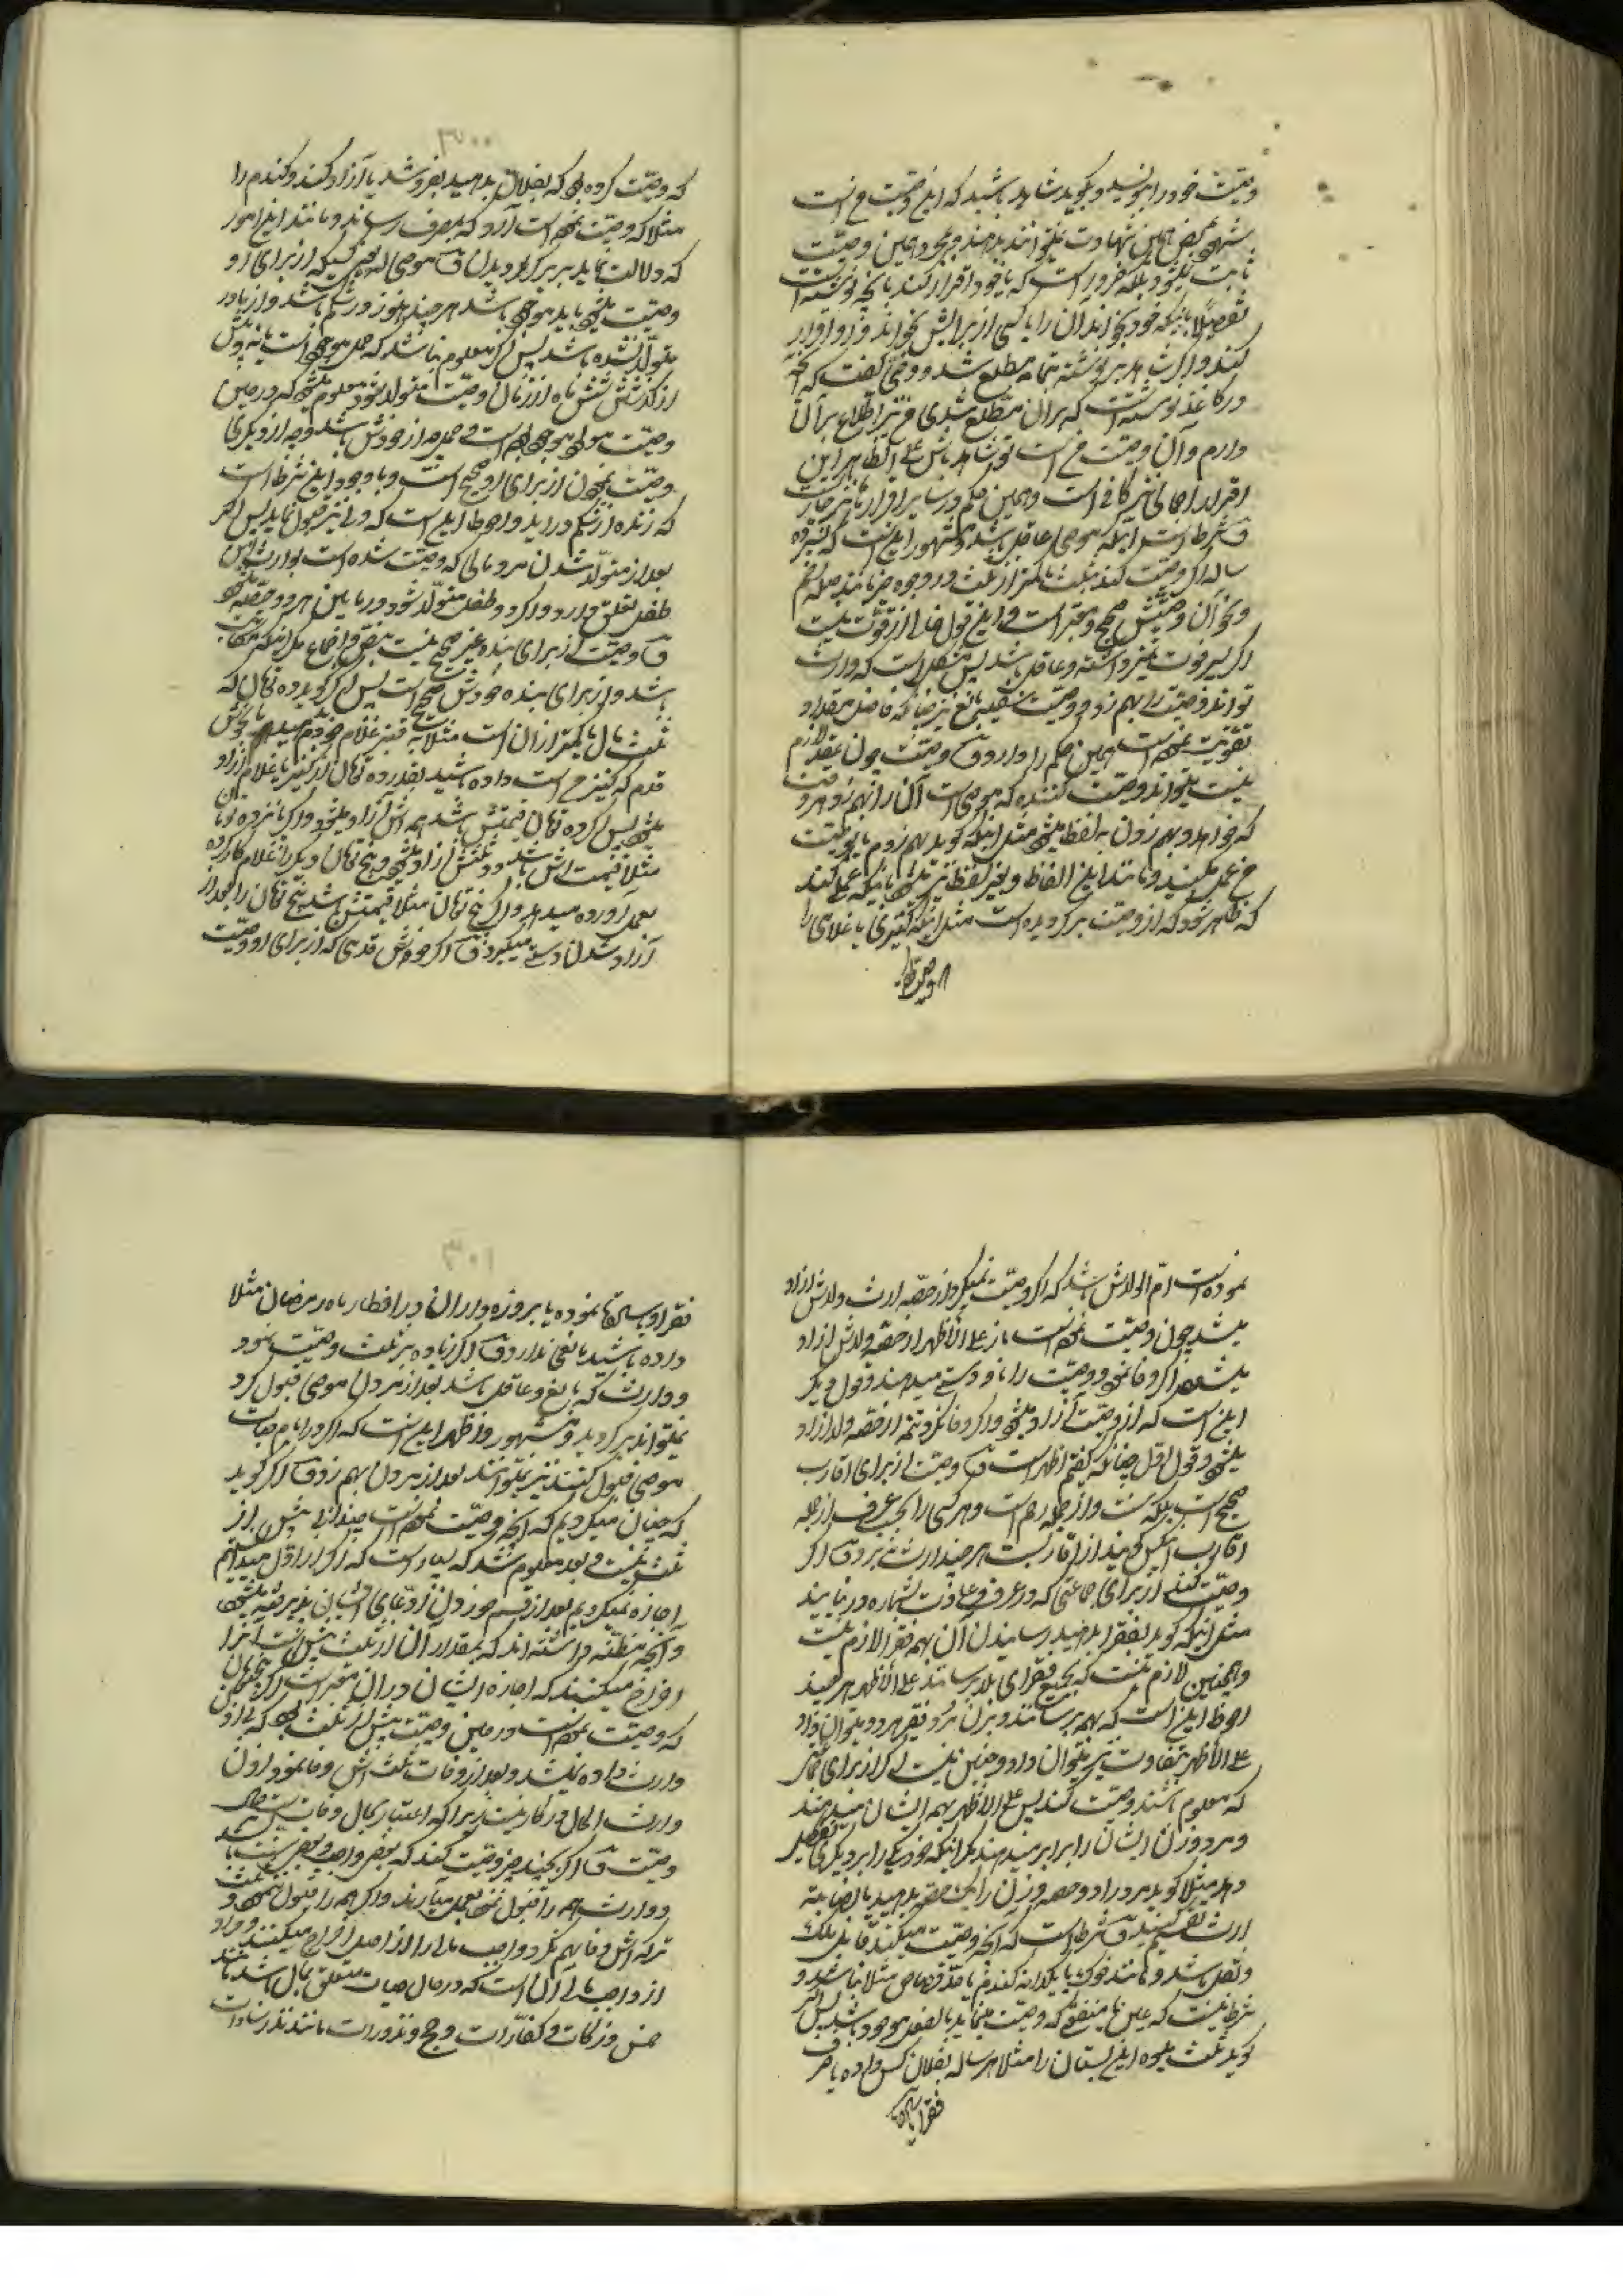 وصیت خود را بنویسد و بگوید شاهد باشید که این وصیت من است
شهود بمحض همین شهادت نمیتوانند بدهند و بمجرد همین وصیت
ثابت نمیشود بلکه ضرور است که یا خود اقرار کند بآنچه نوشته است
تفصیلا باینکه خود بخواند آن را یا کسی از برایش بخواند و او اقرار
کند و اگر شاهد بر نوشته تمام مطلع شد و وصی گفت که آنچه
در کاغذ نوشته است که بر آن مطلع شدی من نیز اطلاع بر آن
دارم و آن وصیت من است تو شاهد باش علی الظاهر این
اقرار اجمالی نیز کافی است و همین حکم در سایر اقرارها نیز جاریست
ق شرط است اینکه موصی عاقل باشد و مشهور اینست که پسر ده
ساله اگر وصیت کند بثلث یا کمتر از ثلث در وجوه خیر مانند صله رحم
و نحو آن وصیتش صحیح و معتبر است و این قول خالی از قوت نیست
اگر پسر قوت تمیز داشته و عاقل باشد پس مشکل است که وارث
تواند وصیت را بهم زند و وصیت سفیه بالغ نیز چنانکه فاضل مقداد
تقویت نموده است همین حکم را دارد ق وصیت چون عقد لازم
نیست میتواند وصیت کننده که موصی است آن را بهم زند هر وقت
که خواهد و بهم زدن بلفظ میشود مثل اینکه گوید بهم زدم یا بوصیت
من عمل مکنید و مانند این الفاظ و بغیر لفظ نیز میشود باینکه عملی کند
که ظاهر شود که از وصیت برگردیده است مثل اینکه کنیزی یا غلامی را
که وصیت کرده بود که بفلان بدهید بفروشد یا آزاد کند و گندم را
مثلا که وصیت نموده است آرد کند بمصرف رساند و مانند این امور
که دلالت نماید بر برگردیدن ق موصی له یعنی کسیکه از برای او
وصیت میشود باید موجود باشد هر چند هنوز در شکم باشد و از مادر
متولد نشده باشد پس اگر معلوم نباشد که حمل موجود است یا نه و پیش
از گذشتن شش ماه از زمان وصیت متولد شود معلوم میشود که در حین
وصیت موجود بوده است و حمل چه از خودش باشد و چه از دیگری
وصیت نمودن از برای او صحیح است و با وجود این شرط است
که زنده از شکم در آید و احوط این است که ولی نیز قبول نماید پس اگر
بعد از متولد شدن مرد مالی که وصیت شده است بوارث این
طفل تعلق دارد و اگر دو طفل متولد شود در میان هر دو حصه میشود
ق وصیت از برای بنده غیر صحیح نیست بنص و اجماع مگر اینکه مکاتب
باشد و از برای بنده خودش صحیح است پس اگر گوید ده تومان که
ثلث مال یا کمتر از آن است مثلا به قنبر غلام خودم بدهید یا بخوش
قدم که کنیز من است داده باشید بقدر ده تومان از کنیز یا غلام آزاد
میشود پس اگر ده تومان قیمتش باشد همه اش آزاد میشود و اگر پانزده تومان
مثلا قیمت اش باشد دو ثلثش آزاد میشود و پنج تومان دیگر را غلام کار کرده
بعمل آورده میدهد و اگر پنج تومان مثلا قیمتش باشد پنج تومان را بعد از
آزاد شدن دستی میگیرد ق اگر خوش قدمی که از برای او وصیت
نموده است ام الولدش باشد که اگر وصیت نمیکرد از حصه ارث ولدش آزاد
میشد چون وصیت نموده است باز علی الاظهر از حصه ولدش آزاد
میشود اگر وفا نمود و وصیت را باو دستی میدهند و قول دیگر
این است که از وصیت آزاد میشود و اگر وفا نکرد تتمه از حصه ولد آزاد
میشود و قول اول چنانکه گفتم اظهر است ق وصیت از برای اقارب
صحیح است بلکه سنت و از جمله صله رحم است و هر کسی را بحسب عرف از جمله
اقارب آنکس گویند از اقاربست هر چند وارث نبرد ق اگر
وصیت کند از برای جماعتی که در عرف و عادت بشماره در نیایند
مثل اینکه گوید بفقرا بدهید رسانیدن آن بهمه فقرا لازم نیست
و همچنین لازم نیست که بجمیع فقرای بلد برسانند علی الاظهر هر چند
احوط این است که بهمه برسانند و بزن و مرد فقیر هر دو میتوان داد
علی الاظهر بتفاوت نیز میتوان داد و چنین نیست اگر از برای جمعی
که معلوم باشند وصیت کند پس علی الاظهر بهمه ایشان میدهند
و مرد و زن ایشان را برابر میدهند مگر اینکه خود یکی را بر دیگری تفضیل
دهد مثلا گوید مرد را دو حصه و زن را یک حصه بدهید یا بضابطه
ارث تقسیم کنید ق شرط است که آنچه وصیت میکند قابل ملک
و نقل باشد و مانند خوک یا یکدانه گندم یا حد قصاص مثلا نباشد و
شرط نیست که عین یا منفعتی که وصیت مینماید بالفعل موجود باشد پس اگر
گوید ثلث میوه این بستان را مثلا هر ساله بفلان کس داده یا صرف
فقرا یا
فقرا و مساکین نموده یا بروزه داران در افطار ماه رمضان مثلا
داده باشید مانعی ندارد ق اگر زیاده بر ثلث وصیت نمود
و وارث که بالغ و عاقل باشد بعد از مردن موصی قبول کرد
نمیتواند برگردید و مشهور و اظهر این است که اگر در ایام حیات
موصی قبول کنند نیز نمیتوانند بعد از مردن بهم زد ق اگر گوید
که چنان میکردیم که آنچه وصیت نموده است چندانی بیش از
ثلث نیست و بعد معلوم شد که بسیار است که اگر از اول میدانستیم
اجازه نمیکردیم بعد از قسم خوردن ادعای ایشان پذیرفته میشود
و آنچه مظنه داشته اند که بمقدار آن از ثلث بیش است آنرا
اخراج میکنند که اجازه ایشان در آن معتبر است اگر پنجتومان
که وصیت نموده است در حین وصیت بیش از ثلث بود که بی اذن
وارث داده نمیشد و بعد از وفات ثلث اش وفا نمود اذن
وارث الحال در کار نیست زیرا که اعتبار بحال وفات است نه حال
وصیت ق اگر بچند چیز وصیت کند که بعضی واجب و بعضی سنت باشد
و وارث همه را قبول نمود بعمل میآرند و اگر همه را قبول ننمود و ثلث
ترکه اش وفا بهمه نکرد واجب مالی را از اصل اخراج میکنند و مراد
از واجب مالی آن است که در حال حیات متعلق بمال باشد مانند
خمس و زکات و کفارات و حج و نذورات مانند نذر سادات